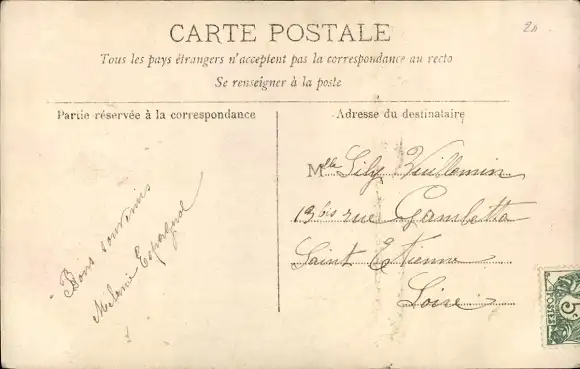 CARTE POSTALE
20
Tous les pays étrangers n'acceptent pas la correspondance au recto
Se renseigner à la poste
Partie réservée à la correspondance
Adresse du destinataire
Bons souvenirs
Mélanie Espagnol
Mlle Lily Vuillemin
13 bis rue Gambetta
Saint Etienne
Loire
POSTES
5